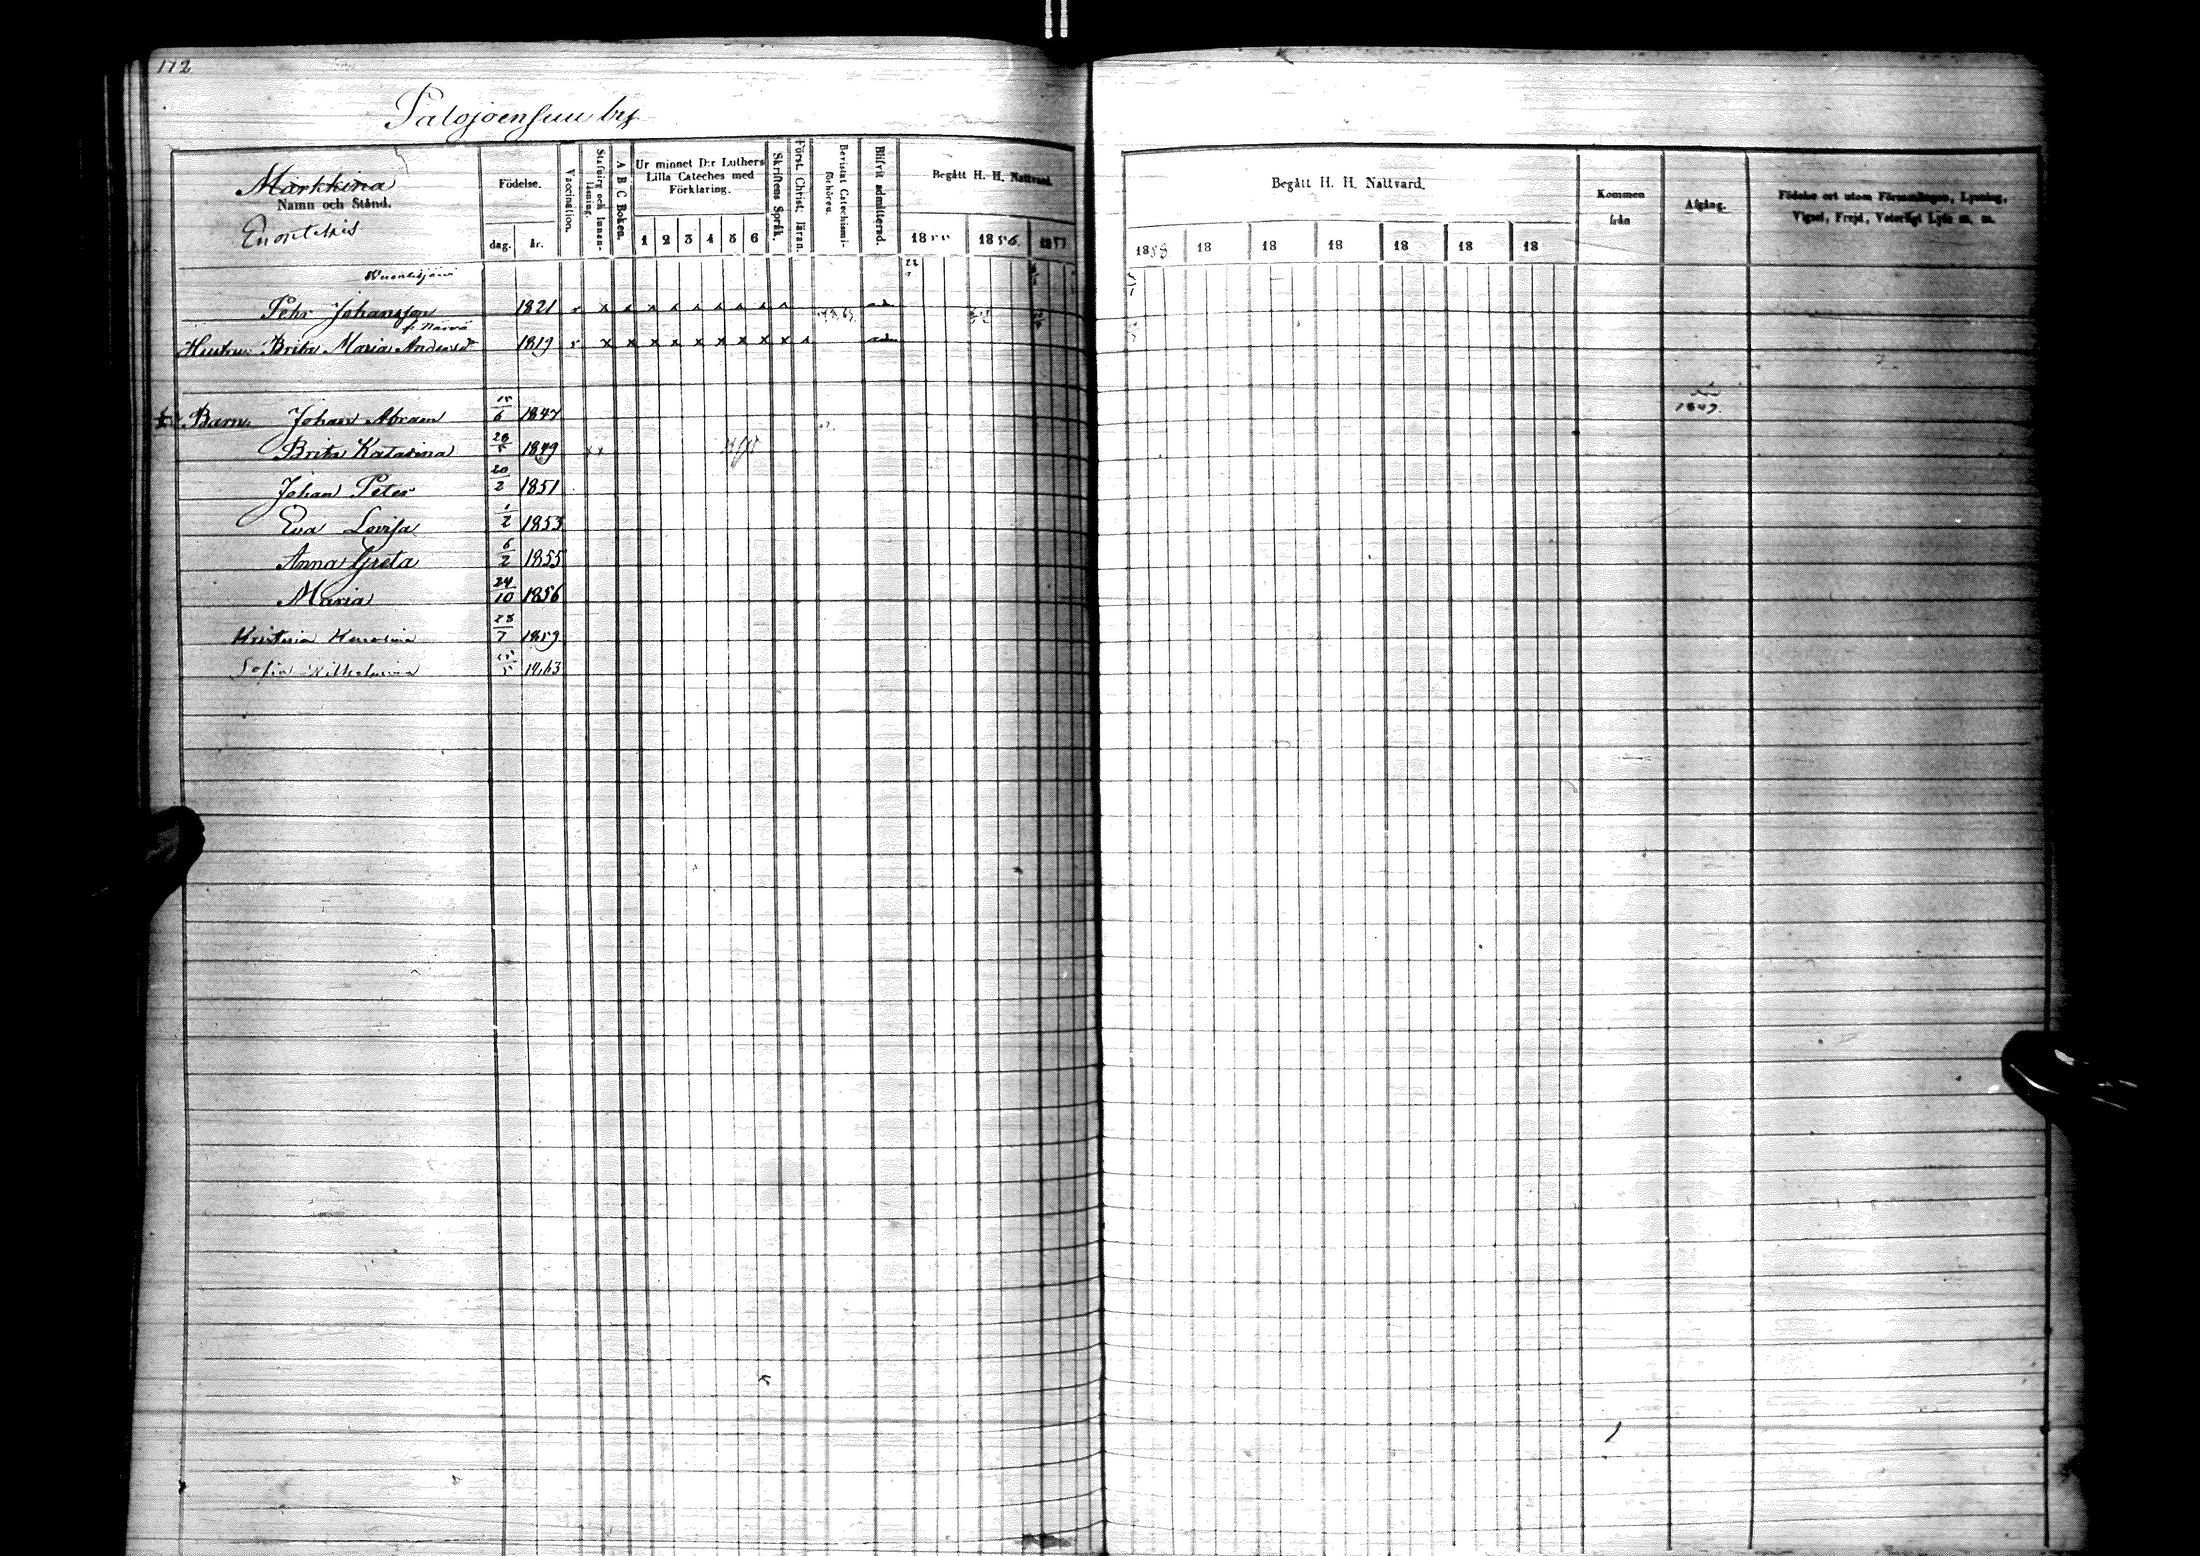 172
Palojoensuu by
Markkina
Namn och Stånd.
Enontekis
Födelse.
dag. år.
Vaccination.
Stafning och Innan-läsning.
A B C Boken.
Ur minnet D:r Luthers Lilla Cateches med Förklaring.
1 2 3 4 5 6
Skriftens Språk.
Först. Christ. läran.
Bevistat Catechismi-förhören.
Blifvit admitterad.
Begått H. H. Nattvard.
1855 1856 1857
Begått H. H. Nattvard.
1858 18 18 18 18 18 18
Kommen från
Afgång.
Födelse ort utom Församlingen, Lysning, Vigsel, Frejd, Vaterligt Lyte m. m.
Pehr Johansson 1821 x x x x x x x x x x
Hustru Brita Maria Andersd 1819 x x x x x x x x x x x
Barn Johan Abram 6 1847
1849
Brita Katarina 1849 x x
Johan Peter 20/2 1851
Eva Lovisa 1/2 1853
Anna Greta 6/2 1855
Maria 24/10 1856
28/7 1859
Sofia Vilhelmina 1863